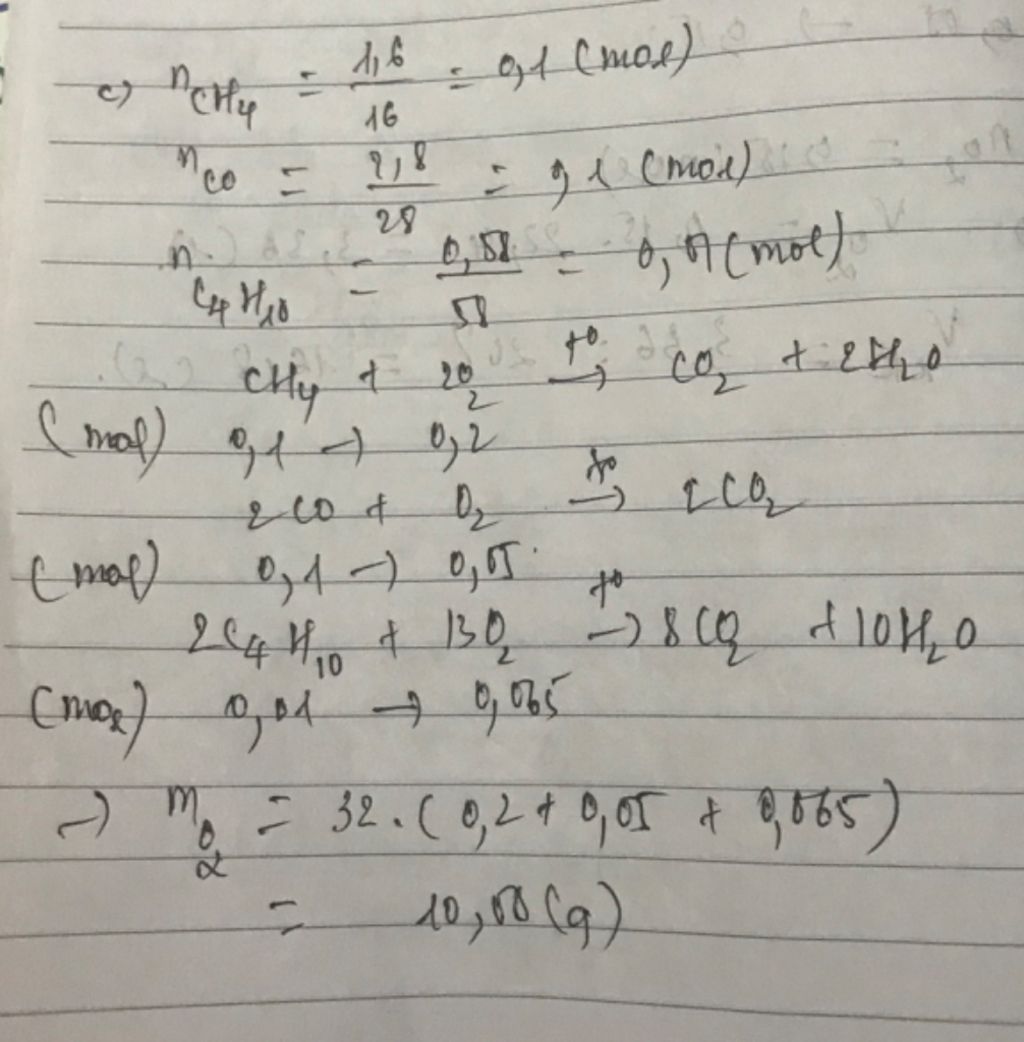 c) n_CH4 = 1,6/16 = 0,1 (mol)
n_CO = 2,8/28 = 0,1 (mol)
n_C4H10 = 0,58/58 = 0,01 (mol)
CH4 + 2O2 →(t°) CO2 + 2H2O
(mol) 0,1 → 0,2
2CO + O2 →(t°) 2CO2
(mol) 0,1 → 0,05
2C4H10 + 13O2 →(t°) 8CO2 + 10H2O
(mol) 0,01 → 0,065
→ m_O2 = 32.(0,2 + 0,05 + 0,065)
= 10,08 (g)